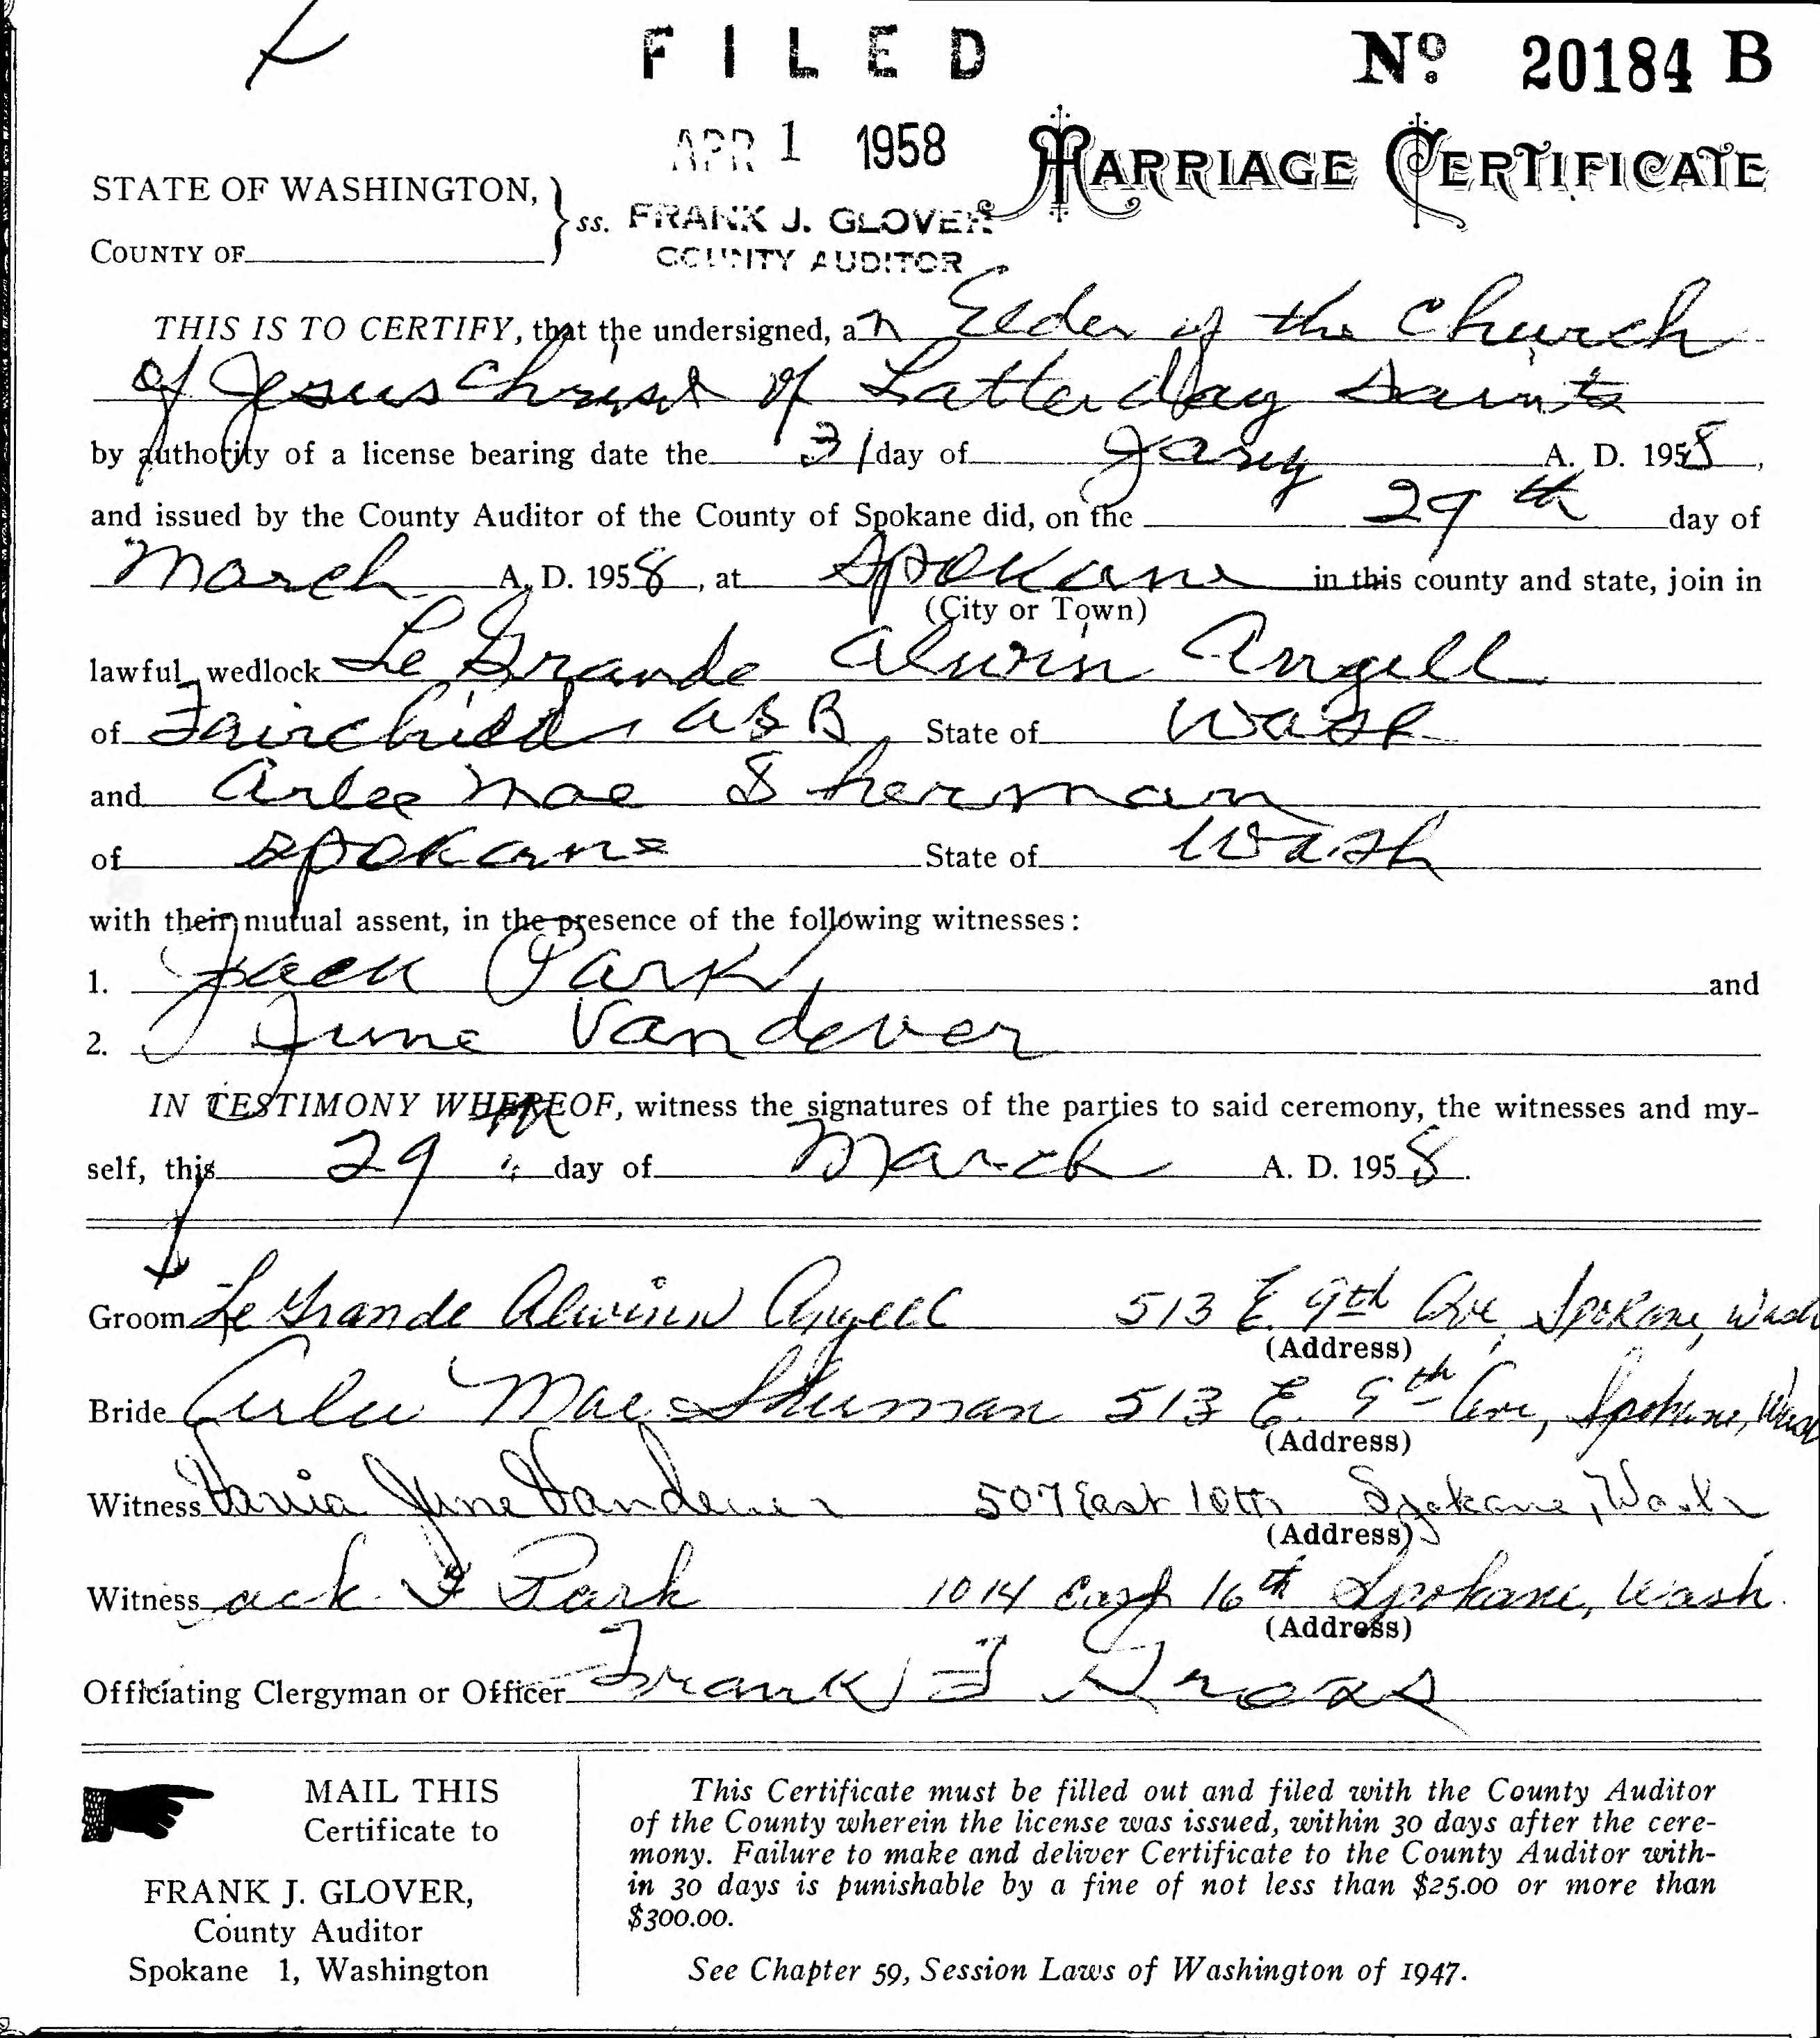 FILED
Nº 20184 B
APR 1 1958
MARRIAGE CERTIFICATE
STATE OF WASHINGTON,
ss. FRANK J. GLOVER
COUNTY OF
COUNTY AUDITOR
THIS IS TO CERTIFY, that the undersigned, an Elder of the Church
of Jesus Christ of Latter Day Saints
by authority of a license bearing date the 31 day of Jany A. D. 1958,
and issued by the County Auditor of the County of Spokane did, on the 29th day of
March A. D. 1958, at Spokane in this county and state, join in
(City or Town)
lawful wedlock Le Grande Alwin Angell
of Fairchild AFB State of Wash
and Arlee Mae Sherman
of Spokane State of Wash
with their mutual assent, in the presence of the following witnesses:
1. Jack Park and
2. June Vandever
IN TESTIMONY WHEREOF, witness the signatures of the parties to said ceremony, the witnesses and my-
self, this 29 day of March A. D. 1958.
Groom Le Grande Alwin Angell 513 E. 9th Ave, Spokane, Wash
(Address)
Bride Arlee Mae Sherman 513 E. 9th Ave, Spokane, Wash
(Address)
Witness June Vandever 507 East 10th Spokane, Wash
(Address)
Witness Jack Park 1014 East 16th Spokane, Wash.
(Address)
Officiating Clergyman or Officer Frank
MAIL THIS
Certificate to
FRANK J. GLOVER,
County Auditor
Spokane 1, Washington
This Certificate must be filled out and filed with the County Auditor
of the County wherein the license was issued, within 30 days after the cere-
mony. Failure to make and deliver Certificate to the County Auditor with-
in 30 days is punishable by a fine of not less than $25.00 or more than
$300.00.
See Chapter 59, Session Laws of Washington of 1947.